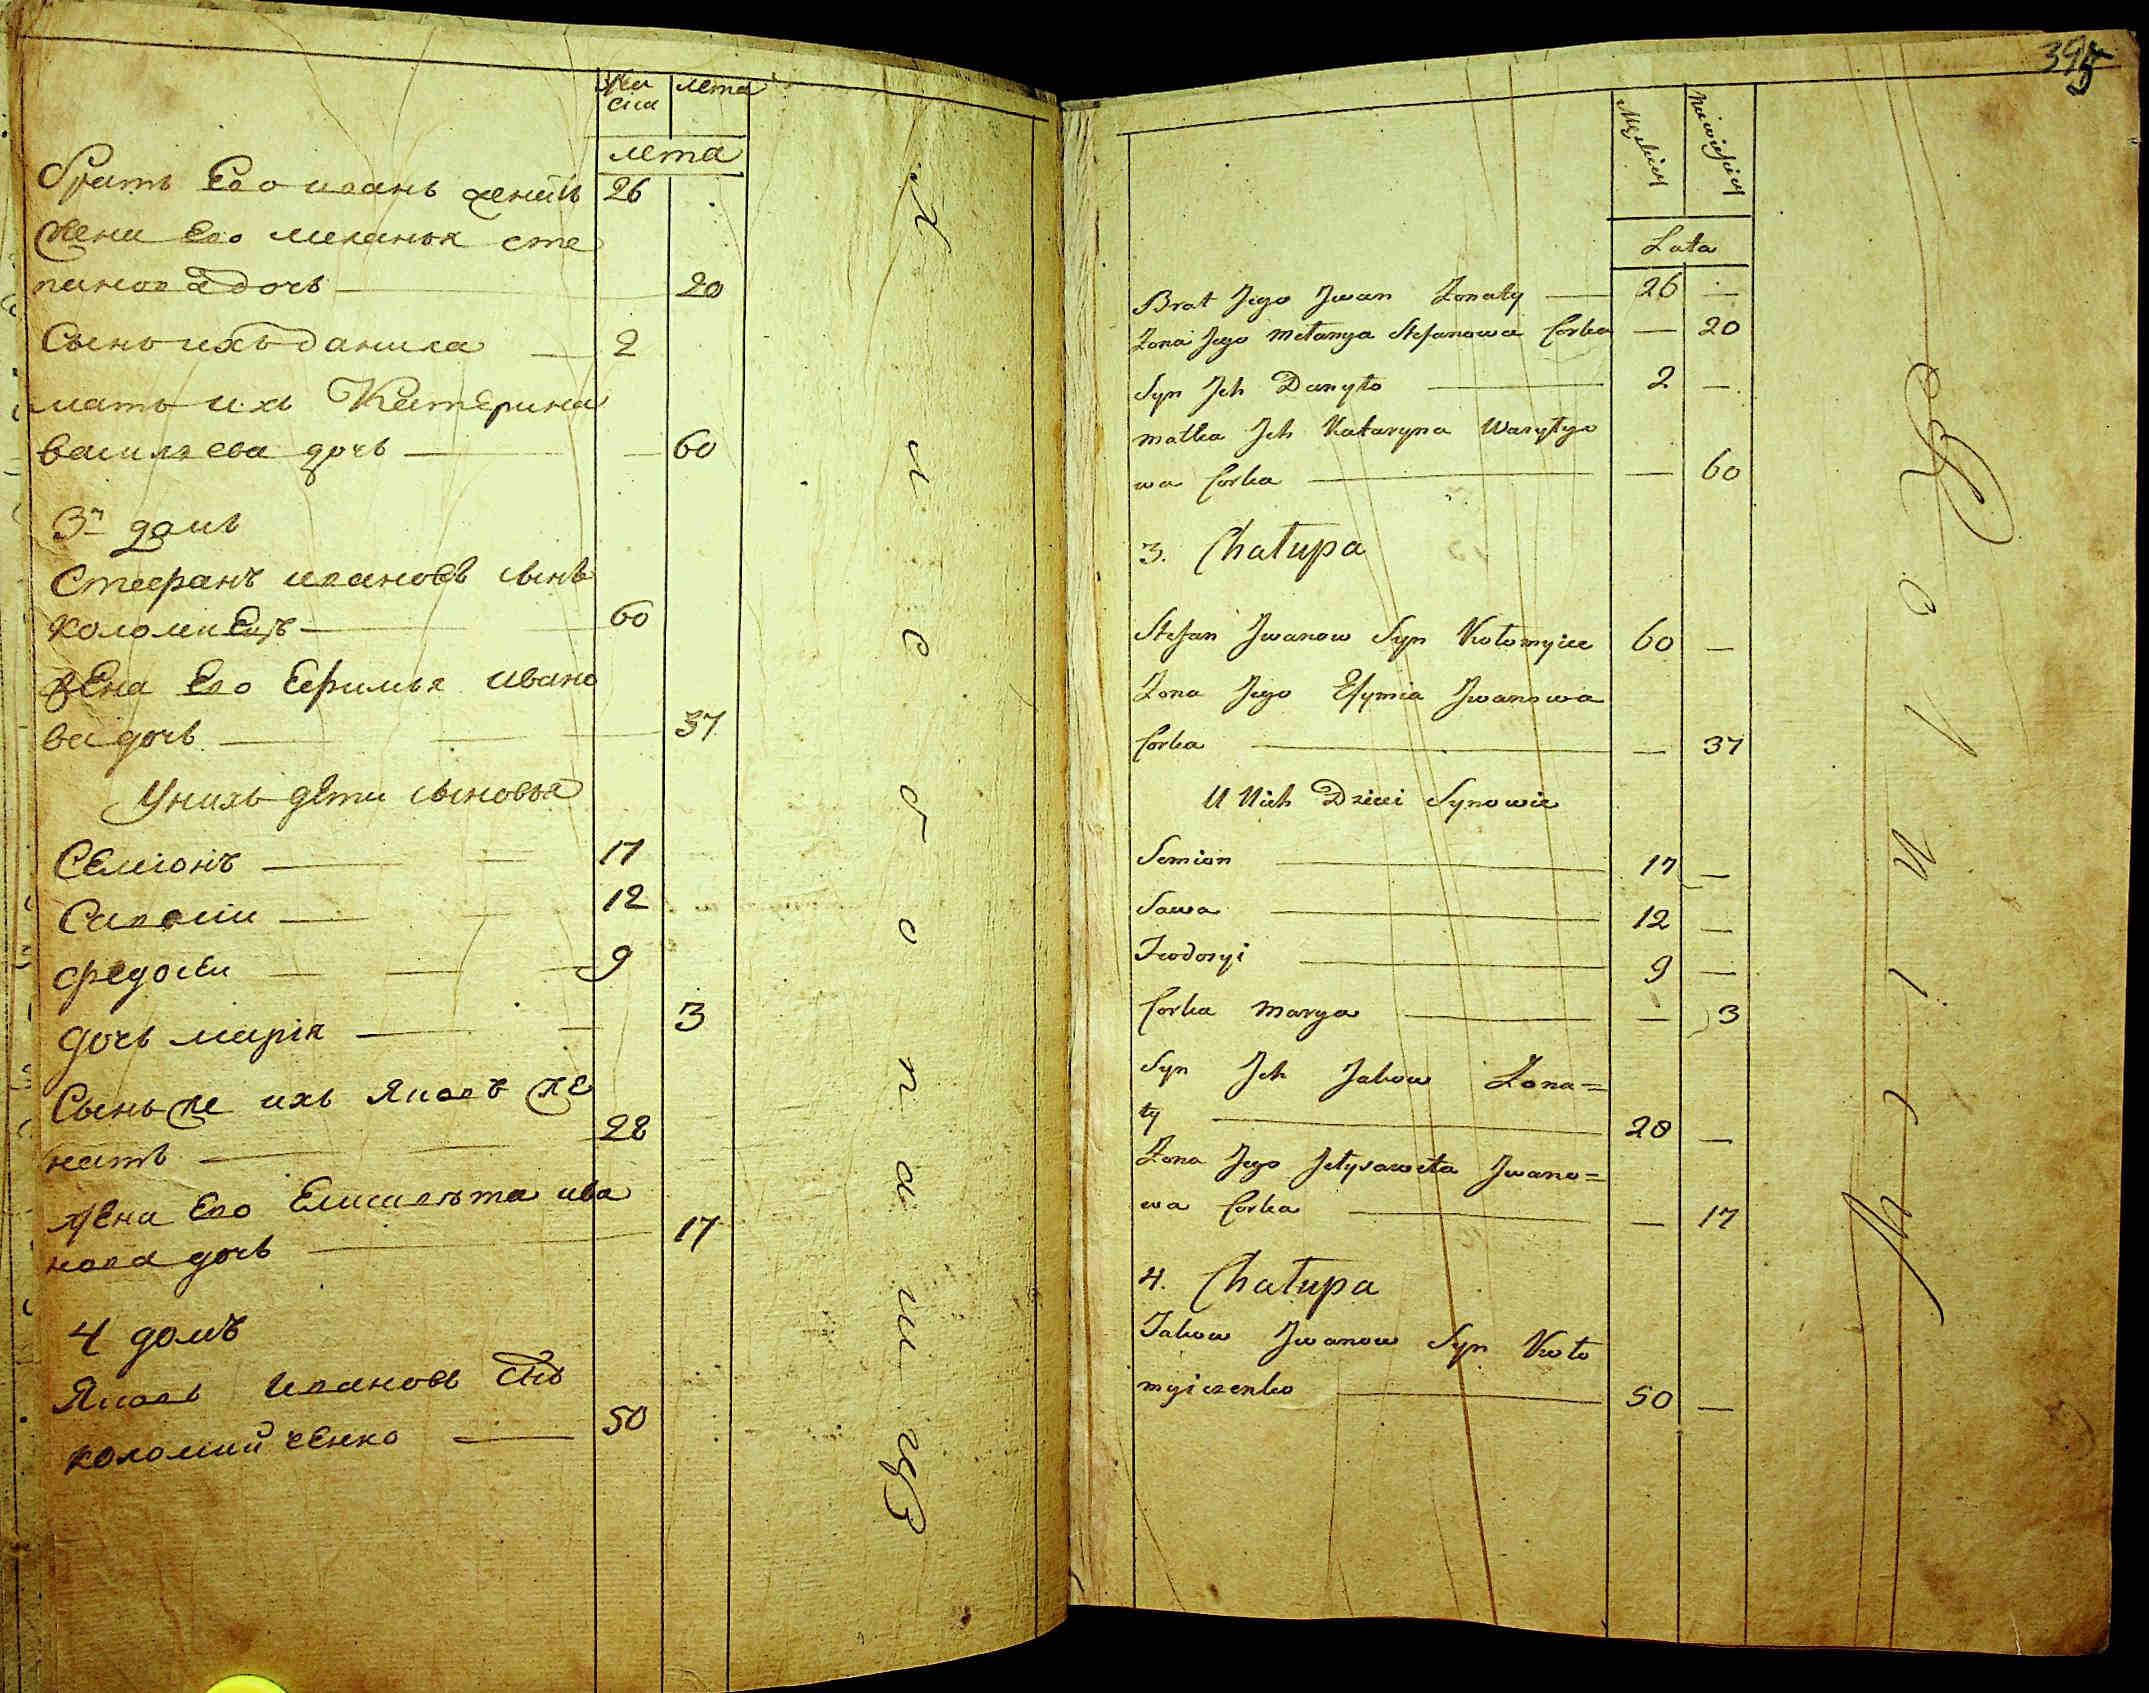 лета
лета
братъ Его иванъ женатъ 26
жена Его меланья сте
панова дочь 20
Сынъ ихъ данила 2
мать ихъ Катерина
василяева дочь 60
3й домъ
Стефанъ ивановъ сынъ
коломиецъ 60
жена Его Ефимья ивано
ва дочь 37
У нихъ дети сыновья
Семіонъ 17
12
федосеи 9
дочь марія 3
Сынъ же ихъ Яковъ же
натъ 28
жена Его Елисавѣта ива
нова дочь 17
4 домъ
Яковъ Ивановъ Снъ
коломийченко 50
К и с о в о п а ш ц ы
395
Męzkiey
Lata
Brat Jego Jwan Zonaty — 26 —
Zona Jego Mełanya Stefanowa Corka — 20
Syn Jch Danyło — 2 —
Matka Jch Kataryna Wasyłyo
wa Corka — — 60
3. Chałupa
Stefan Jwanow Syn Kołomyiec 60 —
Zona Jego Efymia Jwanowa
Corka — — 37
U Nich Dzieci Synowie
Semion — 17 —
Sawa — 12 —
Teodosyi — 9 —
Corka Marya — — 3
Syn Jch Jakow Zona=
ty — 28 —
Zona Jego Jełysaweta Jwano=
wa Corka — — 17
4. Chałupa
Jakow Jwanow Syn Koło
myiczenko — 50 —
R o l n i c y